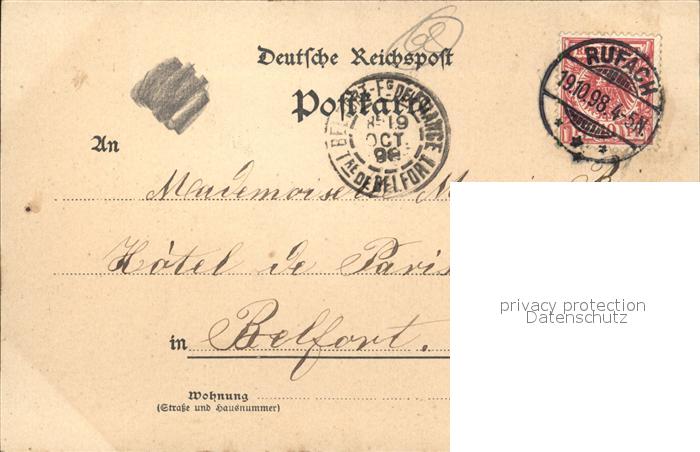 Deutsche Reichspost
Postkarte
RUFACH
19.10.98. 4-5N.
19
OCT
98
TRE DE BELFORT
An
Mademoiselle
Hôtel de Paris
in Belfort.
Wohnung
(Straße und Hausnummer)
privacy protection
Datenschutz